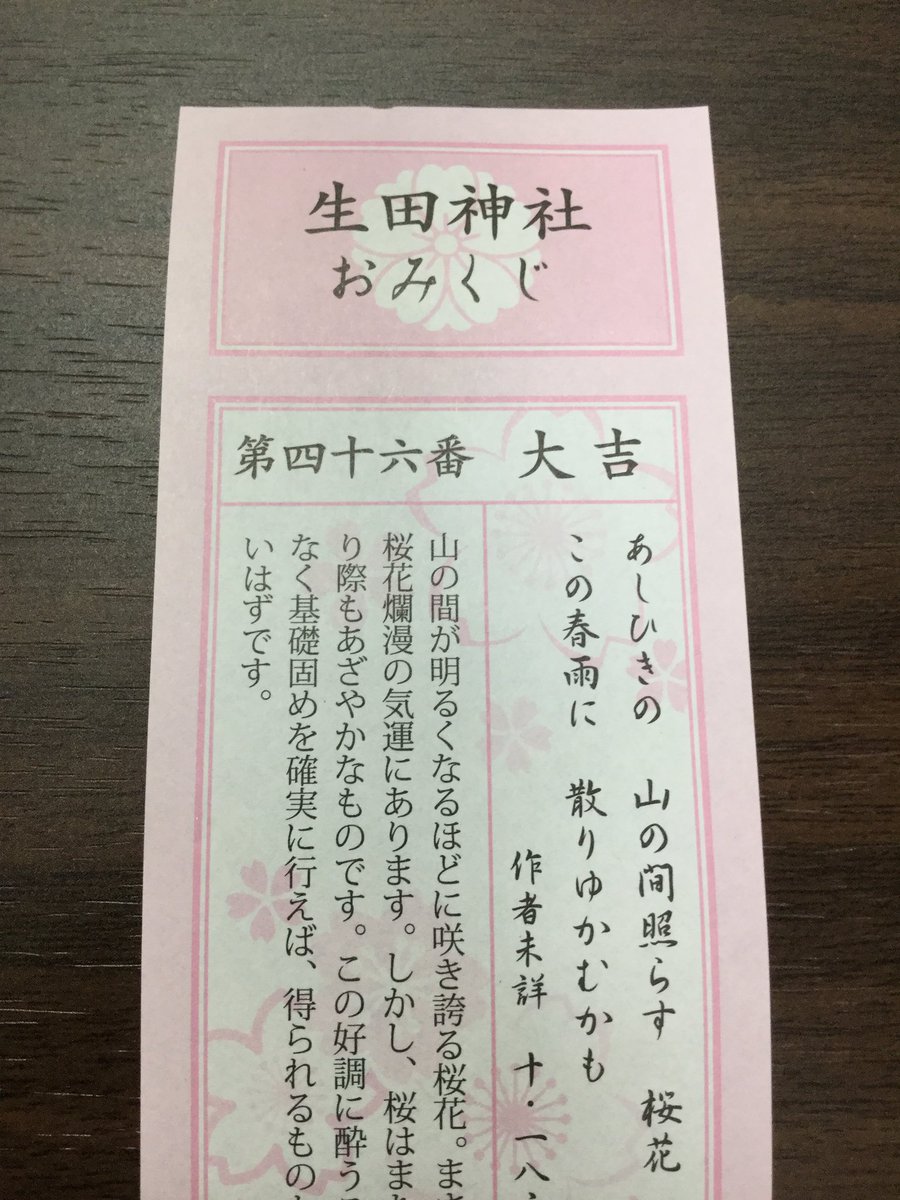 生田神社
おみくじ
第四十六番 大吉
あしひきの 山の間照らす 桜花
この春雨に 散りゆかむかも
作者未詳 十・一八
山の間が明るくなるほどに咲き誇る桜花。ま
桜花爛漫の気運にあります。しかし、桜はま
り際もあざやかなものです。この好調に酔う
なく基礎固めを確実に行えば、得られるもの
いはずです。